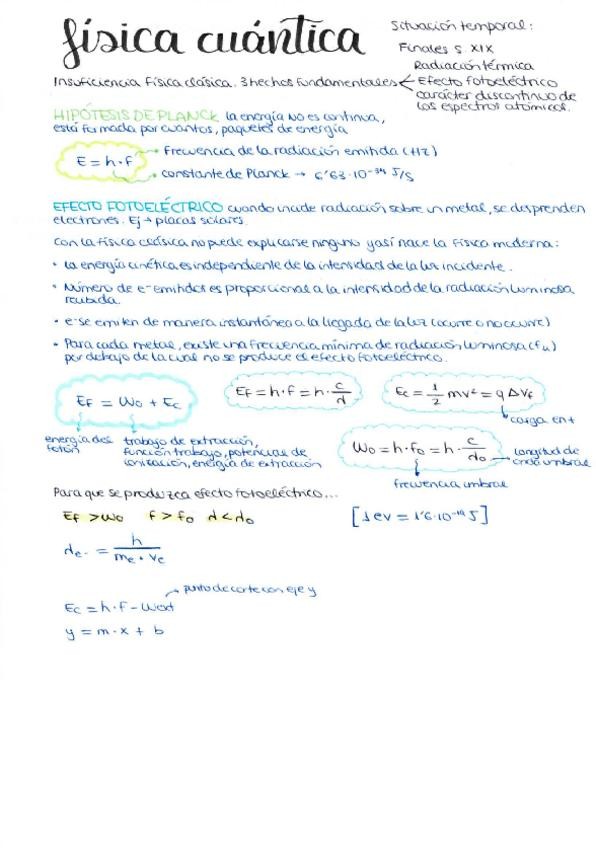 física cuántica
Situación temporal:
Finales s. XIX
Insuficiencia Física clásica. 3 hechos fundamentales
Radiación térmica
Efecto fotoeléctrico
carácter discontinuo de
los espectros atómicos.
HIPÓTESIS DE PLANCK la energía no es continua,
está formada por cuantos, paquetes de energía
E = h·f
→ frecuencia de la radiación emitida (Hz)
→ constante de Planck → 6'63·10⁻³⁴ J/s
EFECTO FOTOELÉCTRICO cuando incide radiación sobre un metal, se desprenden
electrones. Ej → placas solares.
Con la física clásica no puede explicarse ninguno y así nace la física moderna:
• La energía cinética es independiente de la intensidad de la luz incidente.
• Número de e- emitidos es proporcional a la intensidad de la radiación luminosa
recibida.
• e- se emiten de manera instantánea a la llegada de la luz (ocurre o no ocurre)
• Para cada metal, existe una frecuencia mínima de radiación luminosa (fu)
por debajo de la cual no se produce el efecto fotoeléctrico.
EF = W0 + Ec
EF = h·f = h·c/λ
Ec = 1/2 mv² = q ΔVf
carga en +
energía del
fotón
trabajo de extracción,
función trabajo, potencial de
ionización, energía de extracción
W0 = h·f0 = h·c/λ0
longitud de
onda umbral
frecuencia umbral
Para que se produzca efecto fotoeléctrico...
EF > W0 f > f0 λ < λ0
[1 eV = 1'6·10⁻¹⁹ J]
λe- = h/me·ve
punto de corte con eje y
Ec = h·f - W
y = m·x + b